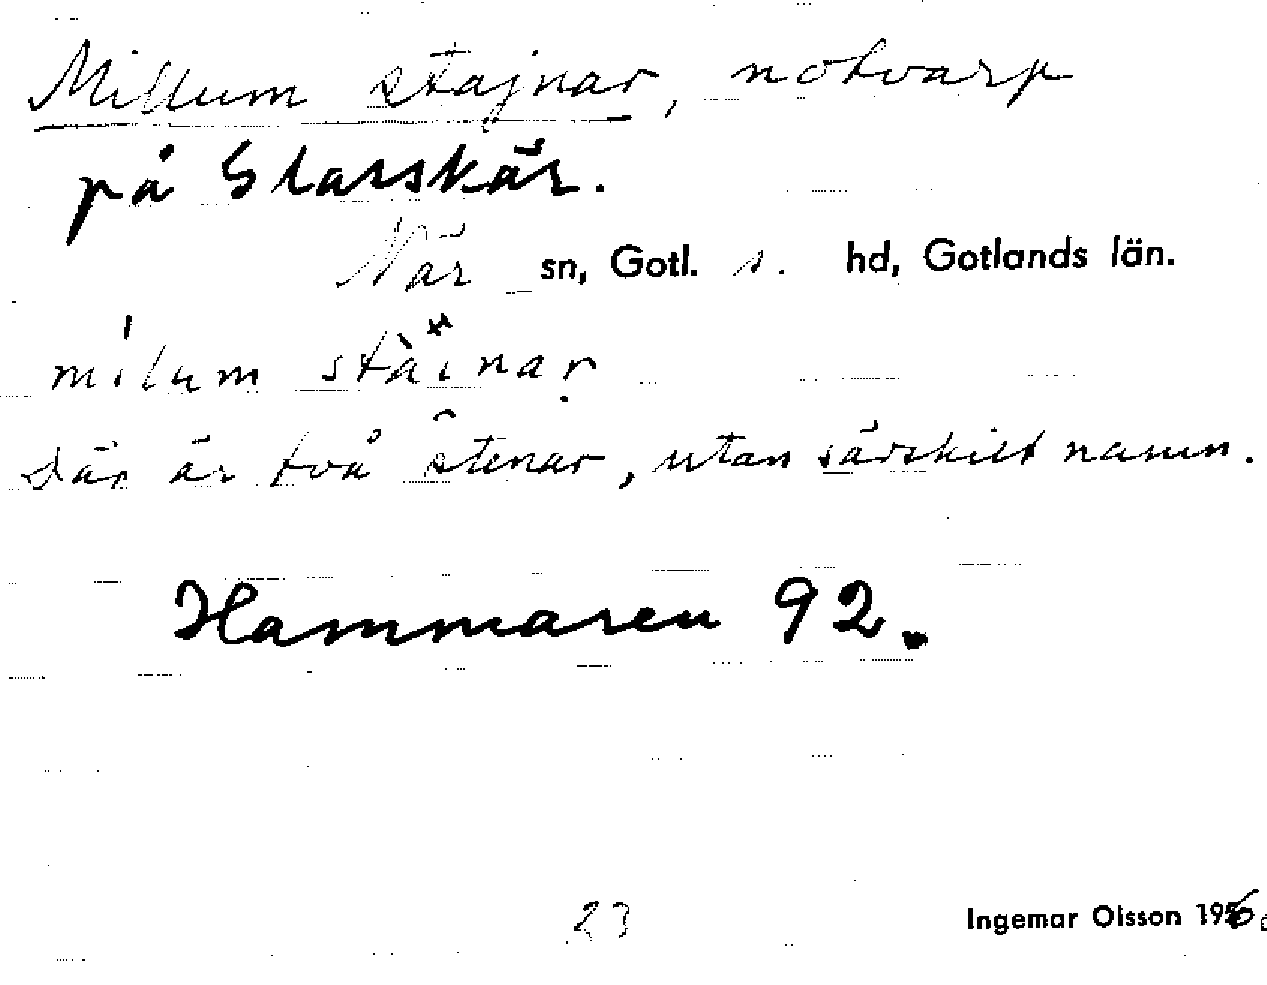 Millum stajnar, notvarp
på Starskär.
När sn, Gotl. s. hd, Gotlands län.
milum stäinar
Där är två stenar, utan särskilt namn.
Hammaren 92.
23
Ingemar Olsson 1956